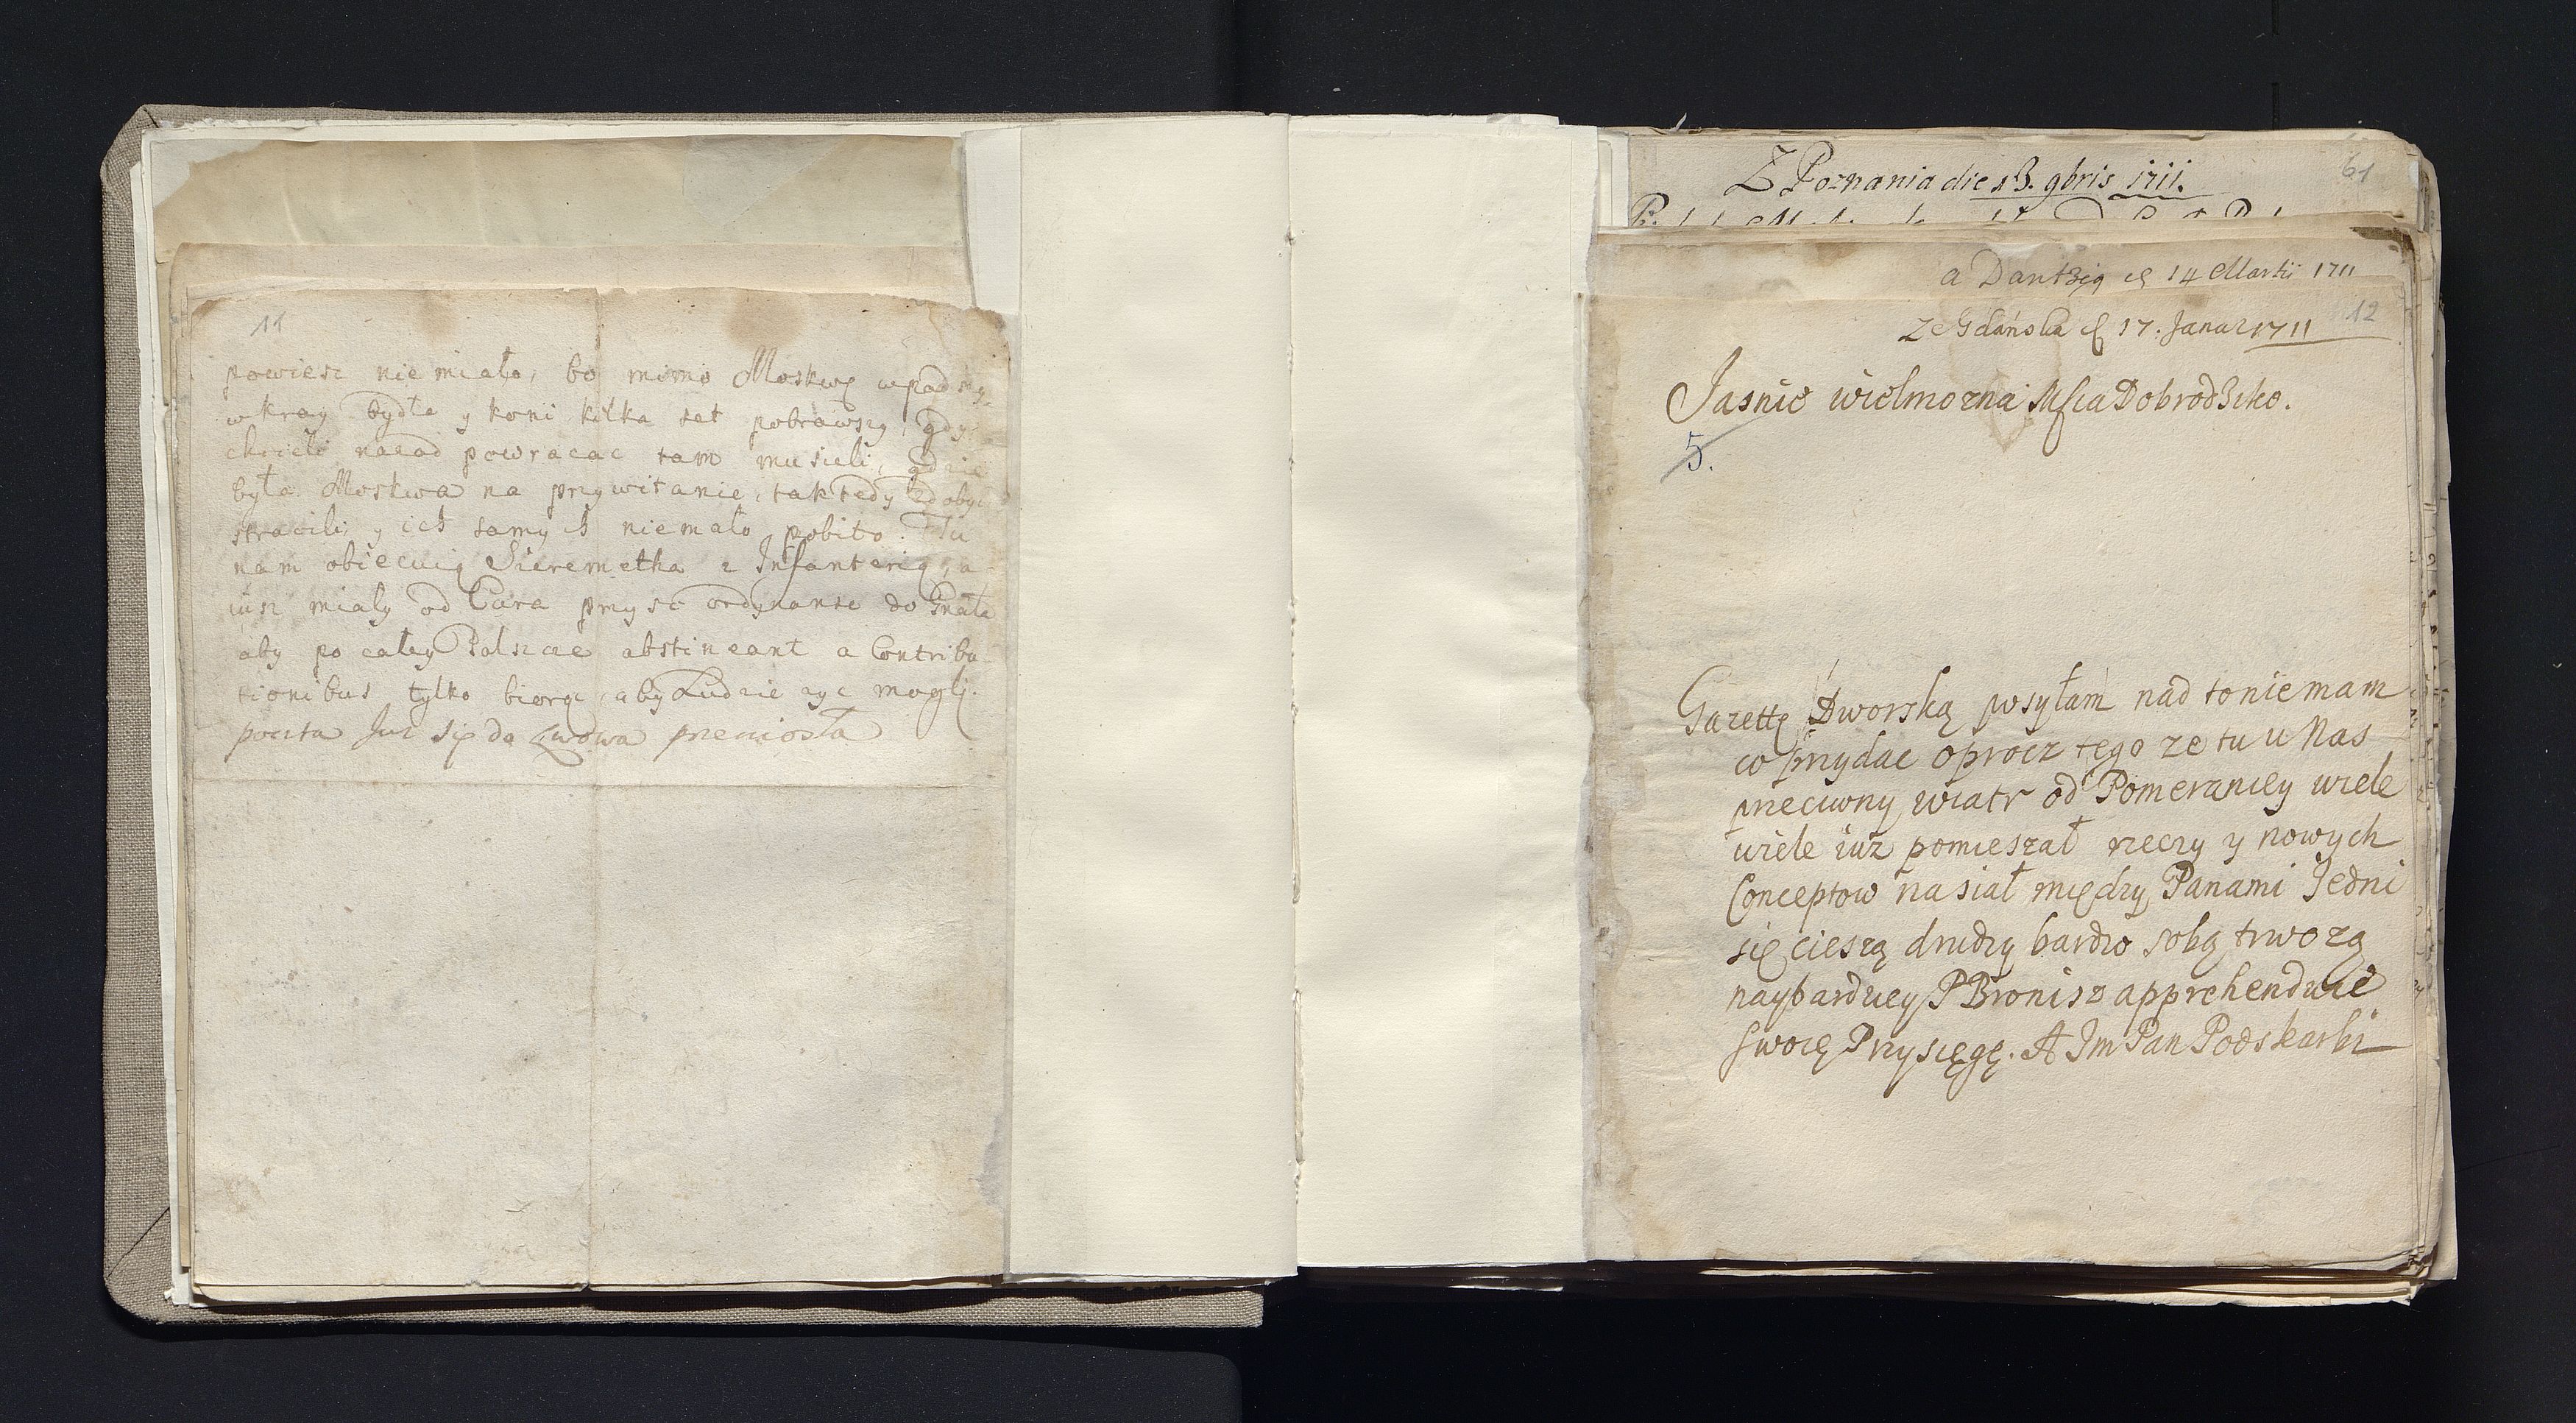 11
powiesc nie miało, bo mimo Moskwę wpadszy
w kray bydła y koni kilka set pobrawszy, gdy
chcieli nazad powracac tam musieli, gdzie
była Moskwa na przywitanie, tak tedy zdobycz
stracili, y ich samych niemało pobito. Tu
nam obiecuią Szeremetha z Infanterią, a
iusz miały od Cara przysc ordynanse do
aby po całey Polszcze abstineant a Contribu-
tionibus tylko biorąc, aby Ludzie zyc mogli.
poczta Juz się do Lwowa przeniosła
Z Poznania die 13. 9bris 1711.
61
a Dantzig 14 Martii 1711
12
Ze Gdańska 17. Januar 1711
Jasnie wielmozna Mscia Dobrodzko.
5.
Gazettę Dworską posyłam nad to nie mam
co przydac oprocz tego ze tu u Nas
przeciwny wiatr od Pomeraniey wiele
wiele iuz pomieszał rzeczy y nowych
Conceptow nasiał między Panami Jedni
się cieszą drudzy bardzo sobą trwozą
naybardziey P Bronisz apprehenduie
swoię Przysięgę. A Jm Pan Podskarbi